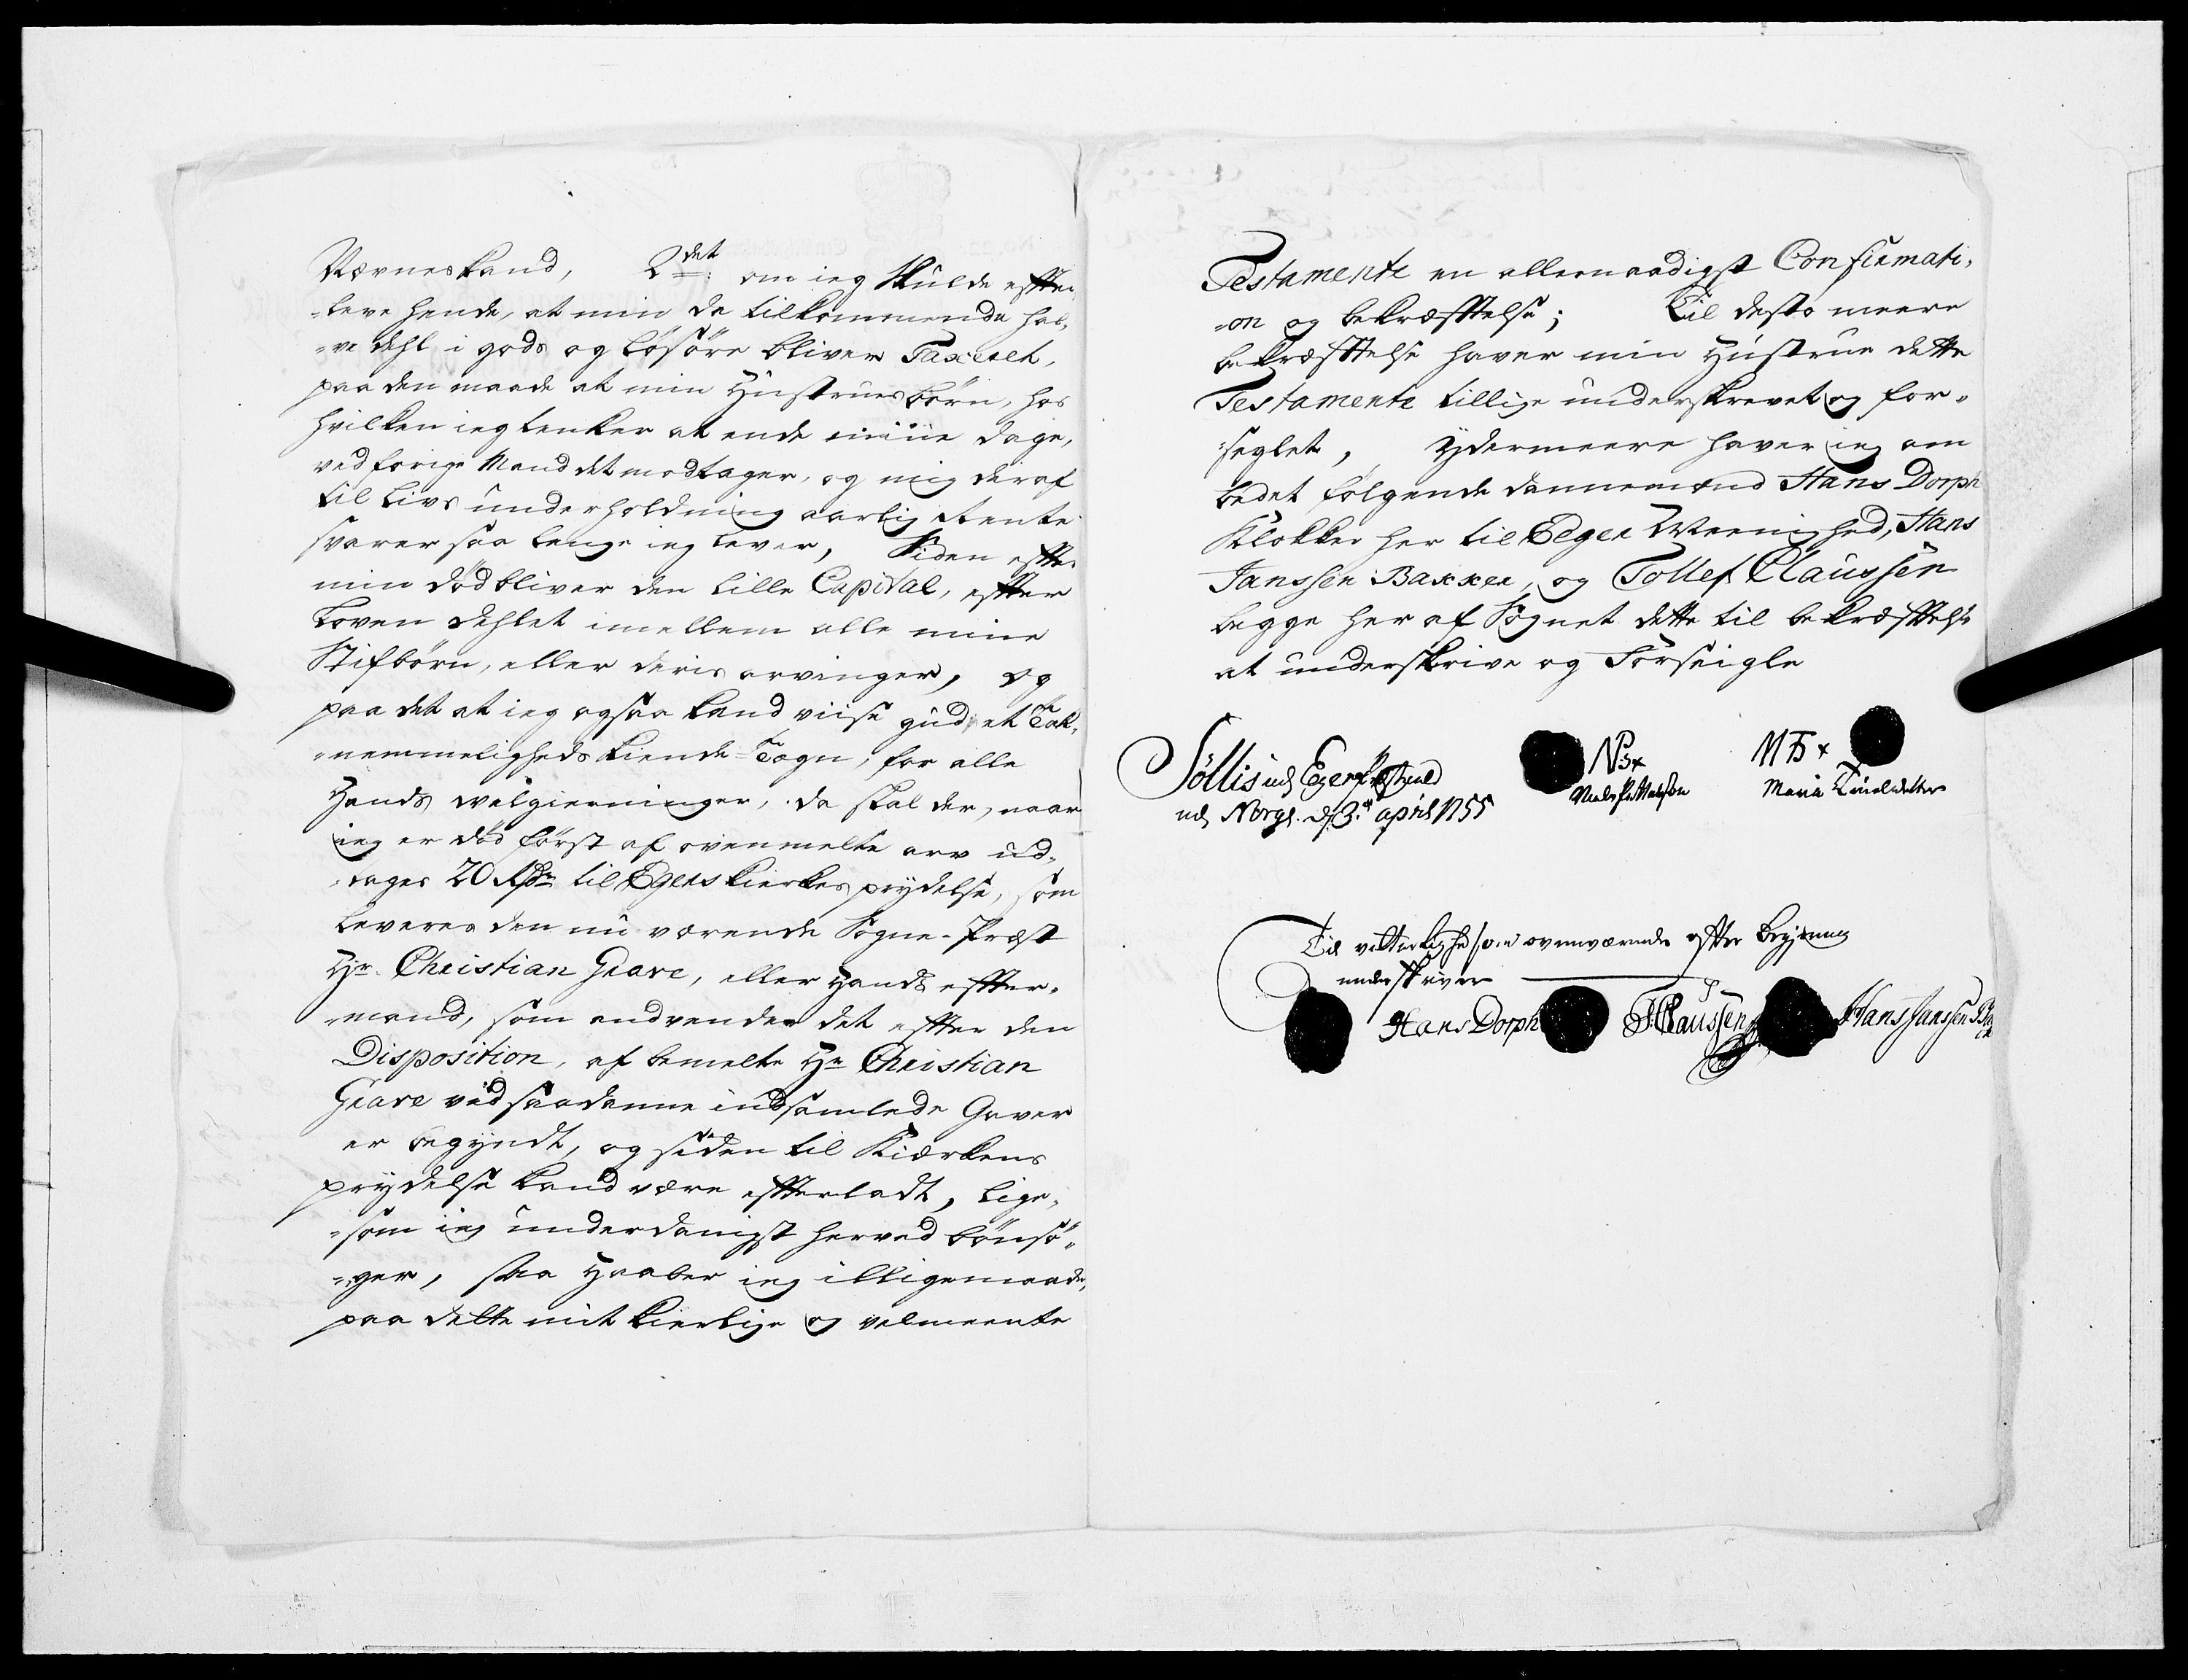 Nævneskand, 2det: om ieg skulde effter
-leve hende, at min da tilkommende hal-
-ve dehl i gods og løsøre bliver Taxeret,
paa den maade at min Hustrues børn, hos
hvilken ieg tenker at ende miine dage,
ved forige Mand det modtager, og mig deraf
til livs underholdning aarlig Rente
svarer saa lenge ieg lever, Siden effter
min død bliver den lille Capital, effter
Loven dehlet imellem alle mine
Stifbørn, eller deris arvinger, og
paa det at ieg ogsaa kand viise gud et Tak-
-nemmeligheds kiende-Tegn, for alle
Hands velgierninger, da skal der, naar
ieg er død først af ovenmelte arv ud-
-tages 20 Rdr til Egers kierkes prydelse, som
leveres den nu værende Sogne-Præst
Hr. Christian Grave, eller Hands effter-
-mand, som andvender det effter den
Disposition, af bemelte Hr Christian
Grave ved saadanne indsamlede Gaver
er begyndt, og siden til Kierkens
prydelse kand være effterladt, lige-
-som ieg underdanigst herved bønsø-
-ger, saa Haaber ieg illigemaade,
paa dette mit kierlige og velmeente
Testamente en allernaadigst Confirmati-
-on og bekræfftelse; Til desto meere
bekræfftelse haver min Hustrue dette
Testamente tillige underskrevet og for-
-seglet, ydermeere haver ieg om
bedet følgende dannemænd Hans Dorph
Klokker her til Eger Meenighed, Hans
Janssen Bakker, og Tollef Claussen
begge her af Sognet dette til bekræfftelse
at underskrive og Forseigle
Søllis udj Eger Præstegield
udj Norge. d. 3.de april 1755
Niels Pettersøn
Maria Truelsdatter
Til vitterlighed som overværende effter begiæring
underskriver
Hans Dorph T: Claussen Hans Janssen Ba